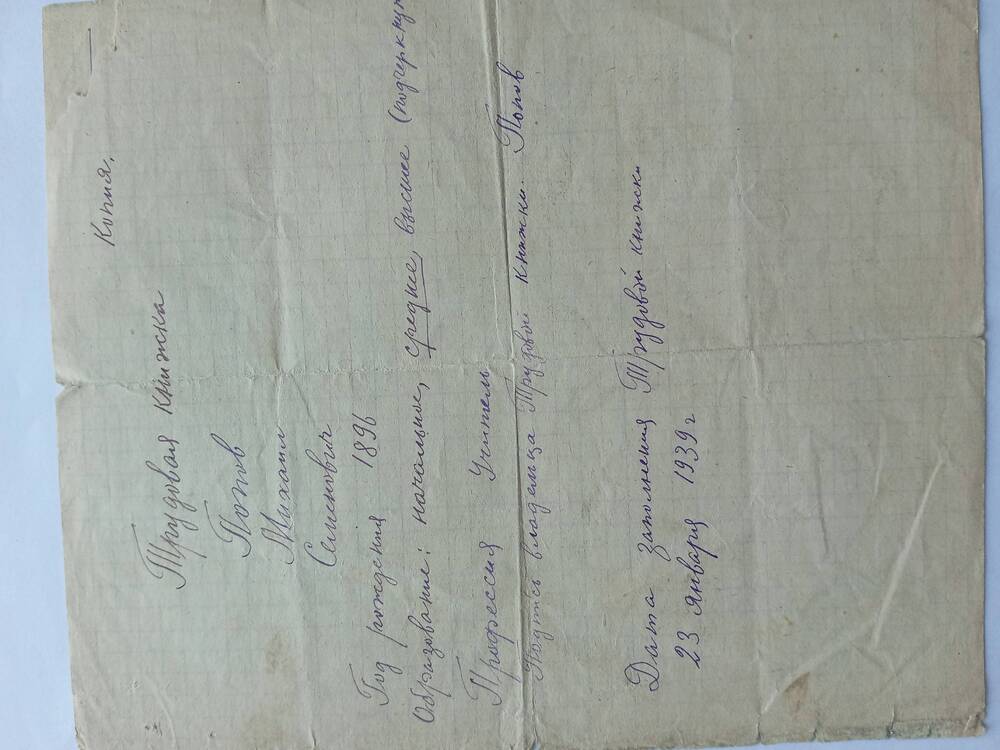 Копия.
Трудовая книжка
Попов
Михаил
Семенович
Год рождения 1896
Образование: начальное, среднее, высшее (подчеркнут
Профессия Учитель
Подпись владельца Трудовой книжки. Попов
Дата заполнения Трудовой книжки
23 января 1939 г